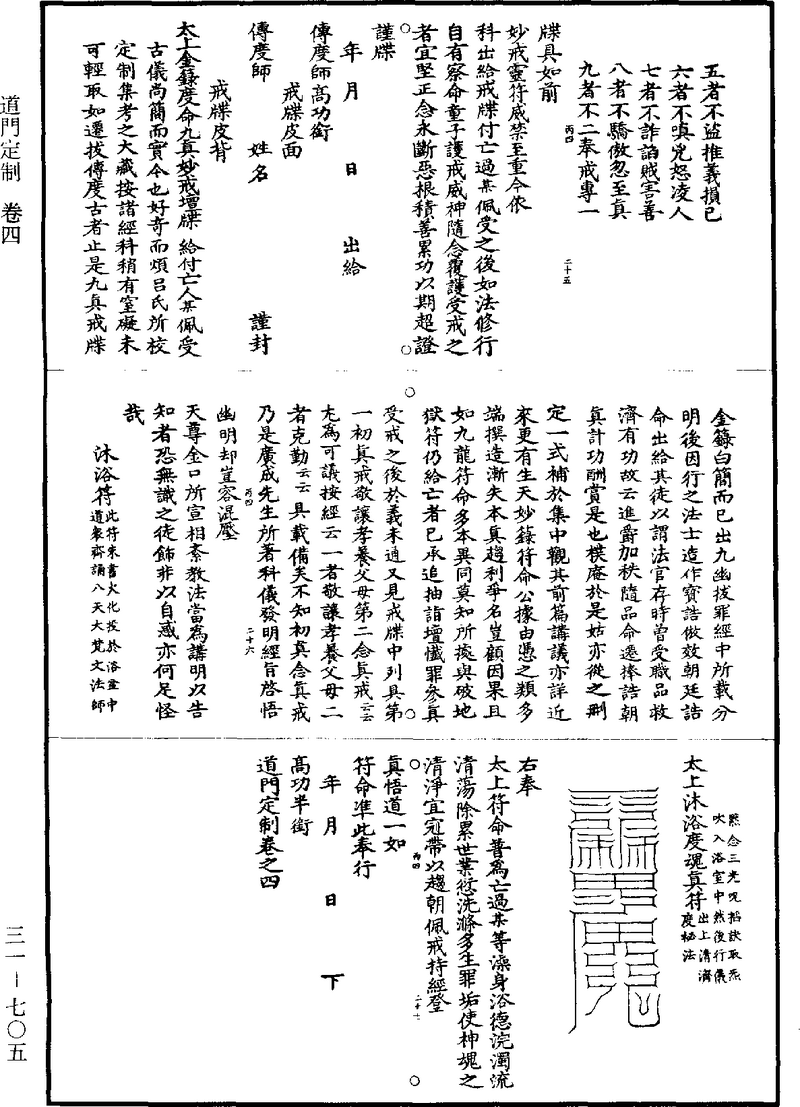 道門定制　卷四
五者不盜推義損己
六者不嗔兇怒凌人
七者不詐諂賊害善
八者不驕傲忽至真
九者不二奉戒專一
丙四
二十五
牒具如前
妙戒靈符威禁至重今依
科出給戒牒付亡過某佩受之後如法修行
自有察命童子護戒威神隨念覆護受戒之
者宜堅正念永斷惡根積善累功以期超證
謹牒
年　月　日　出給
傳度師高功銜
戒牒皮面
傳度師　姓名　謹封
戒牒皮背
太上金籙度命九真妙戒壇牒 給付亡人某佩受
古儀尚簡而實今也好奇而煩呂氏所校
定制集考之大藏按諸經科稍有窒礙未
可輕取如遷拔傳度古者止是九真戒牒
金籙白簡而已出九幽拔罪經中所載分
明後因行之法士造作寶誥倣效朝廷誥
命出給其徒以謂法官存時曾受職品救
濟有功故云進爵加秩隨品命遷捧誥朝
真計功酬賞是也樸庵於是姑亦從之刪
定一式補於集中觀其前篇講議亦詳近
來更有生天妙籙符命公據由憑之類多
端撰造漸失本真趨利爭名豈顧因果且
如九龍符命多本異同莫知所擬與破地
獄符仍給亡者已承追抽詣壇懺罪參真
受戒之後於義未通又見戒牒中列具第
一初真戒敬讓孝養父母第二念真戒云云
尤為可議按經云一者敬讓孝養父母二
者克勤云云具載備矣不知初真念真戒
乃是廣成先生所著科儀發明經旨啓悟
丙四
二十六
幽明却豈容混壓
天尊金口所宣相紊教法當為講明以告
知者恐無識之徒飾非以自惑亦何足怪
哉
沐浴符此符朱書火化投於浴室中
道眾齊誦八天大梵文法師
黙念三光呪掐訣取炁
吹入浴室中然後行儀
出上清濟
度秘法
太上沐浴度魂真符
右奉
太上符命普為亡過某等澡身浴德浣濁流
清蕩除累世業愆洗滌多生罪垢使神魂之
清淨宜冠帶以趨朝佩戒持經登
丙四
二十七
真悟道一如
符命準此奉行
年　月　日　下
高功半銜
道門定制卷之四
三一—七〇五